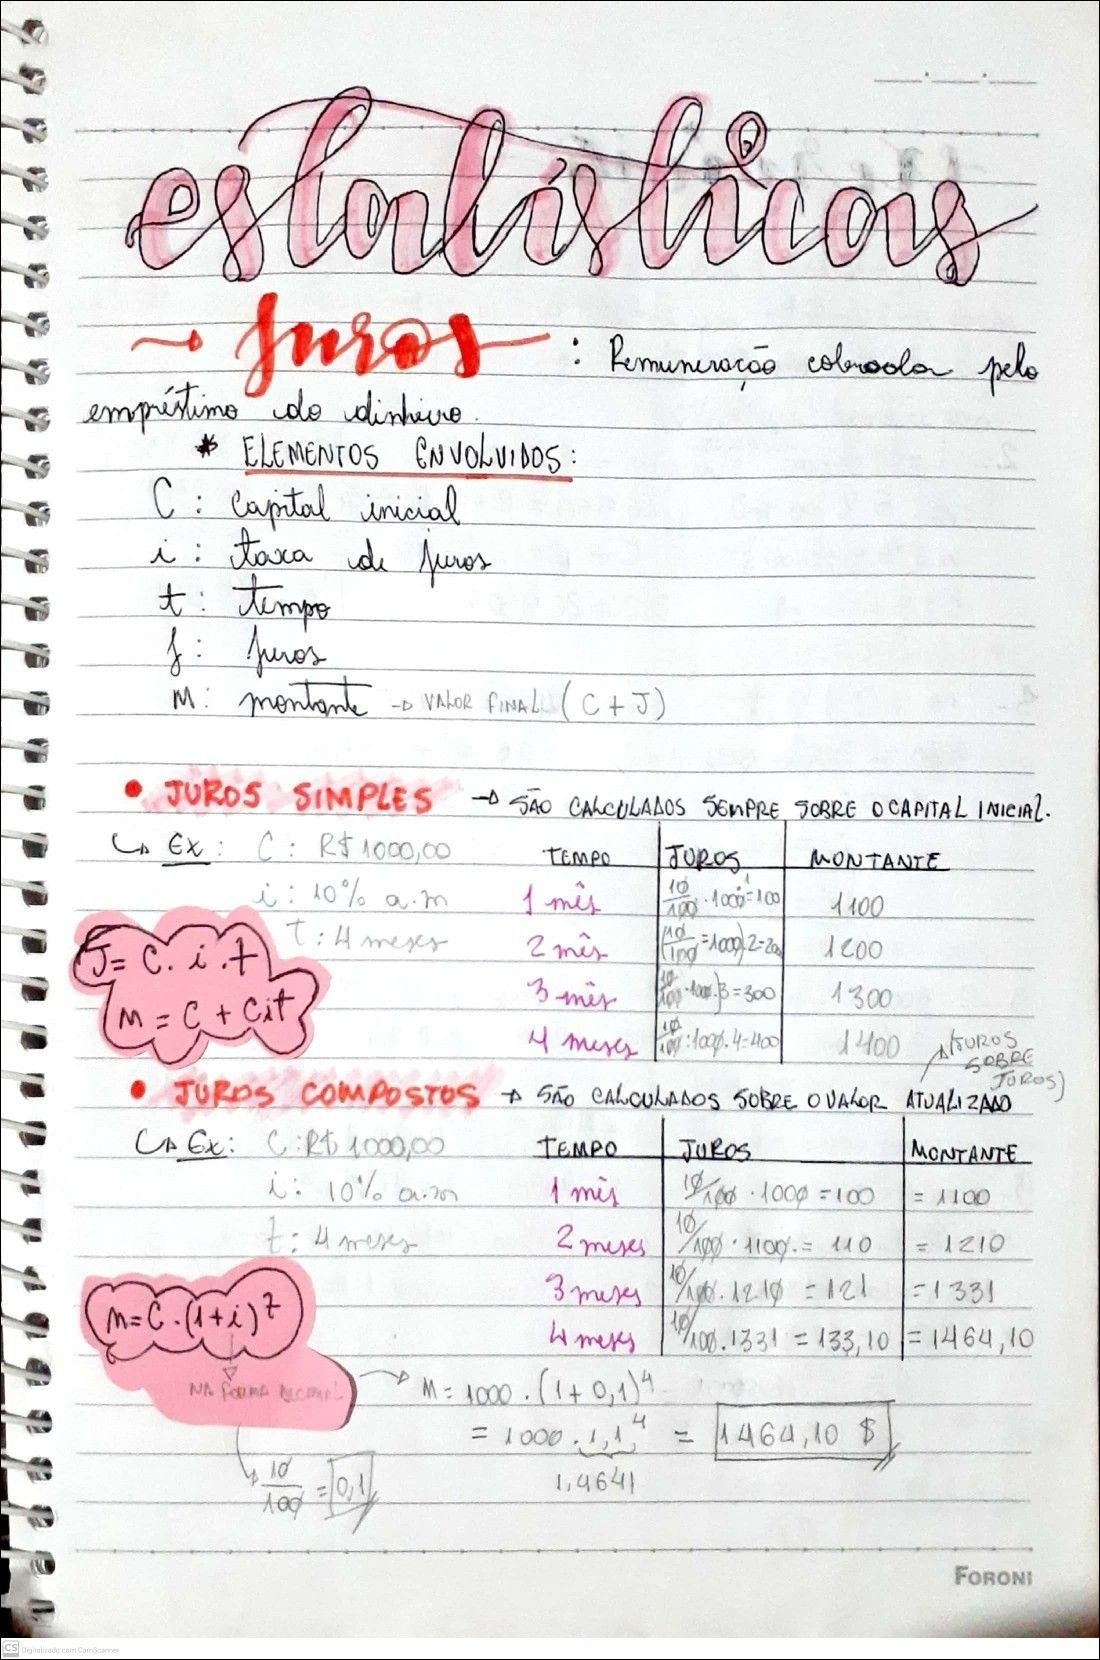 estatísticas
→ Juros : Remuneração cobrada pelo
empréstimo do dinheiro.
* ELEMENTOS ENVOLVIDOS:
C : capital inicial
i : taxa de juros
t : tempo
J : Juros
M : montante → VALOR FINAL (C + J)
• JUROS SIMPLES → SÃO CALCULADOS SEMPRE SOBRE O CAPITAL INICIAL.
↳ EX : C : R$ 1000,00
i : 10% a.m
t : 4 meses
J = C . i . t
M = C + Cit
TEMPO JUROS MONTANTE
1 mês 10/100 . 1000 = 100 1100
2 mês (10/100 = 1000).2 = 200 1200
3 mês 10/100 . 1000.)3 = 300 1300
4 meses 10/100 : 1000 . 4 = 400 1400
(JUROS
SOBRE
JUROS)
• JUROS COMPOSTOS → SÃO CALCULADOS SOBRE O VALOR ATUALIZADO
↳ EX : C : R$ 1000,00
i : 10% a.m
t : 4 meses
TEMPO JUROS MONTANTE
1 mês 10/100 . 1000 = 100 = 1100
2 meses 10/100 . 1100. = 110 = 1210
3 meses 10/100 . 1210 = 121 = 1331
4 meses 10/100 . 1331 = 133,10 = 1464,10
M = C . (1 + i)^t
NA FORMA DECIMAL
→ M = 1000 . (1 + 0,1)^4
= 1000 . 1,1^4 = 1464,10 $
1,4641
10/100 = 0,1
FORONI
CS Digitalizado com CamScanner